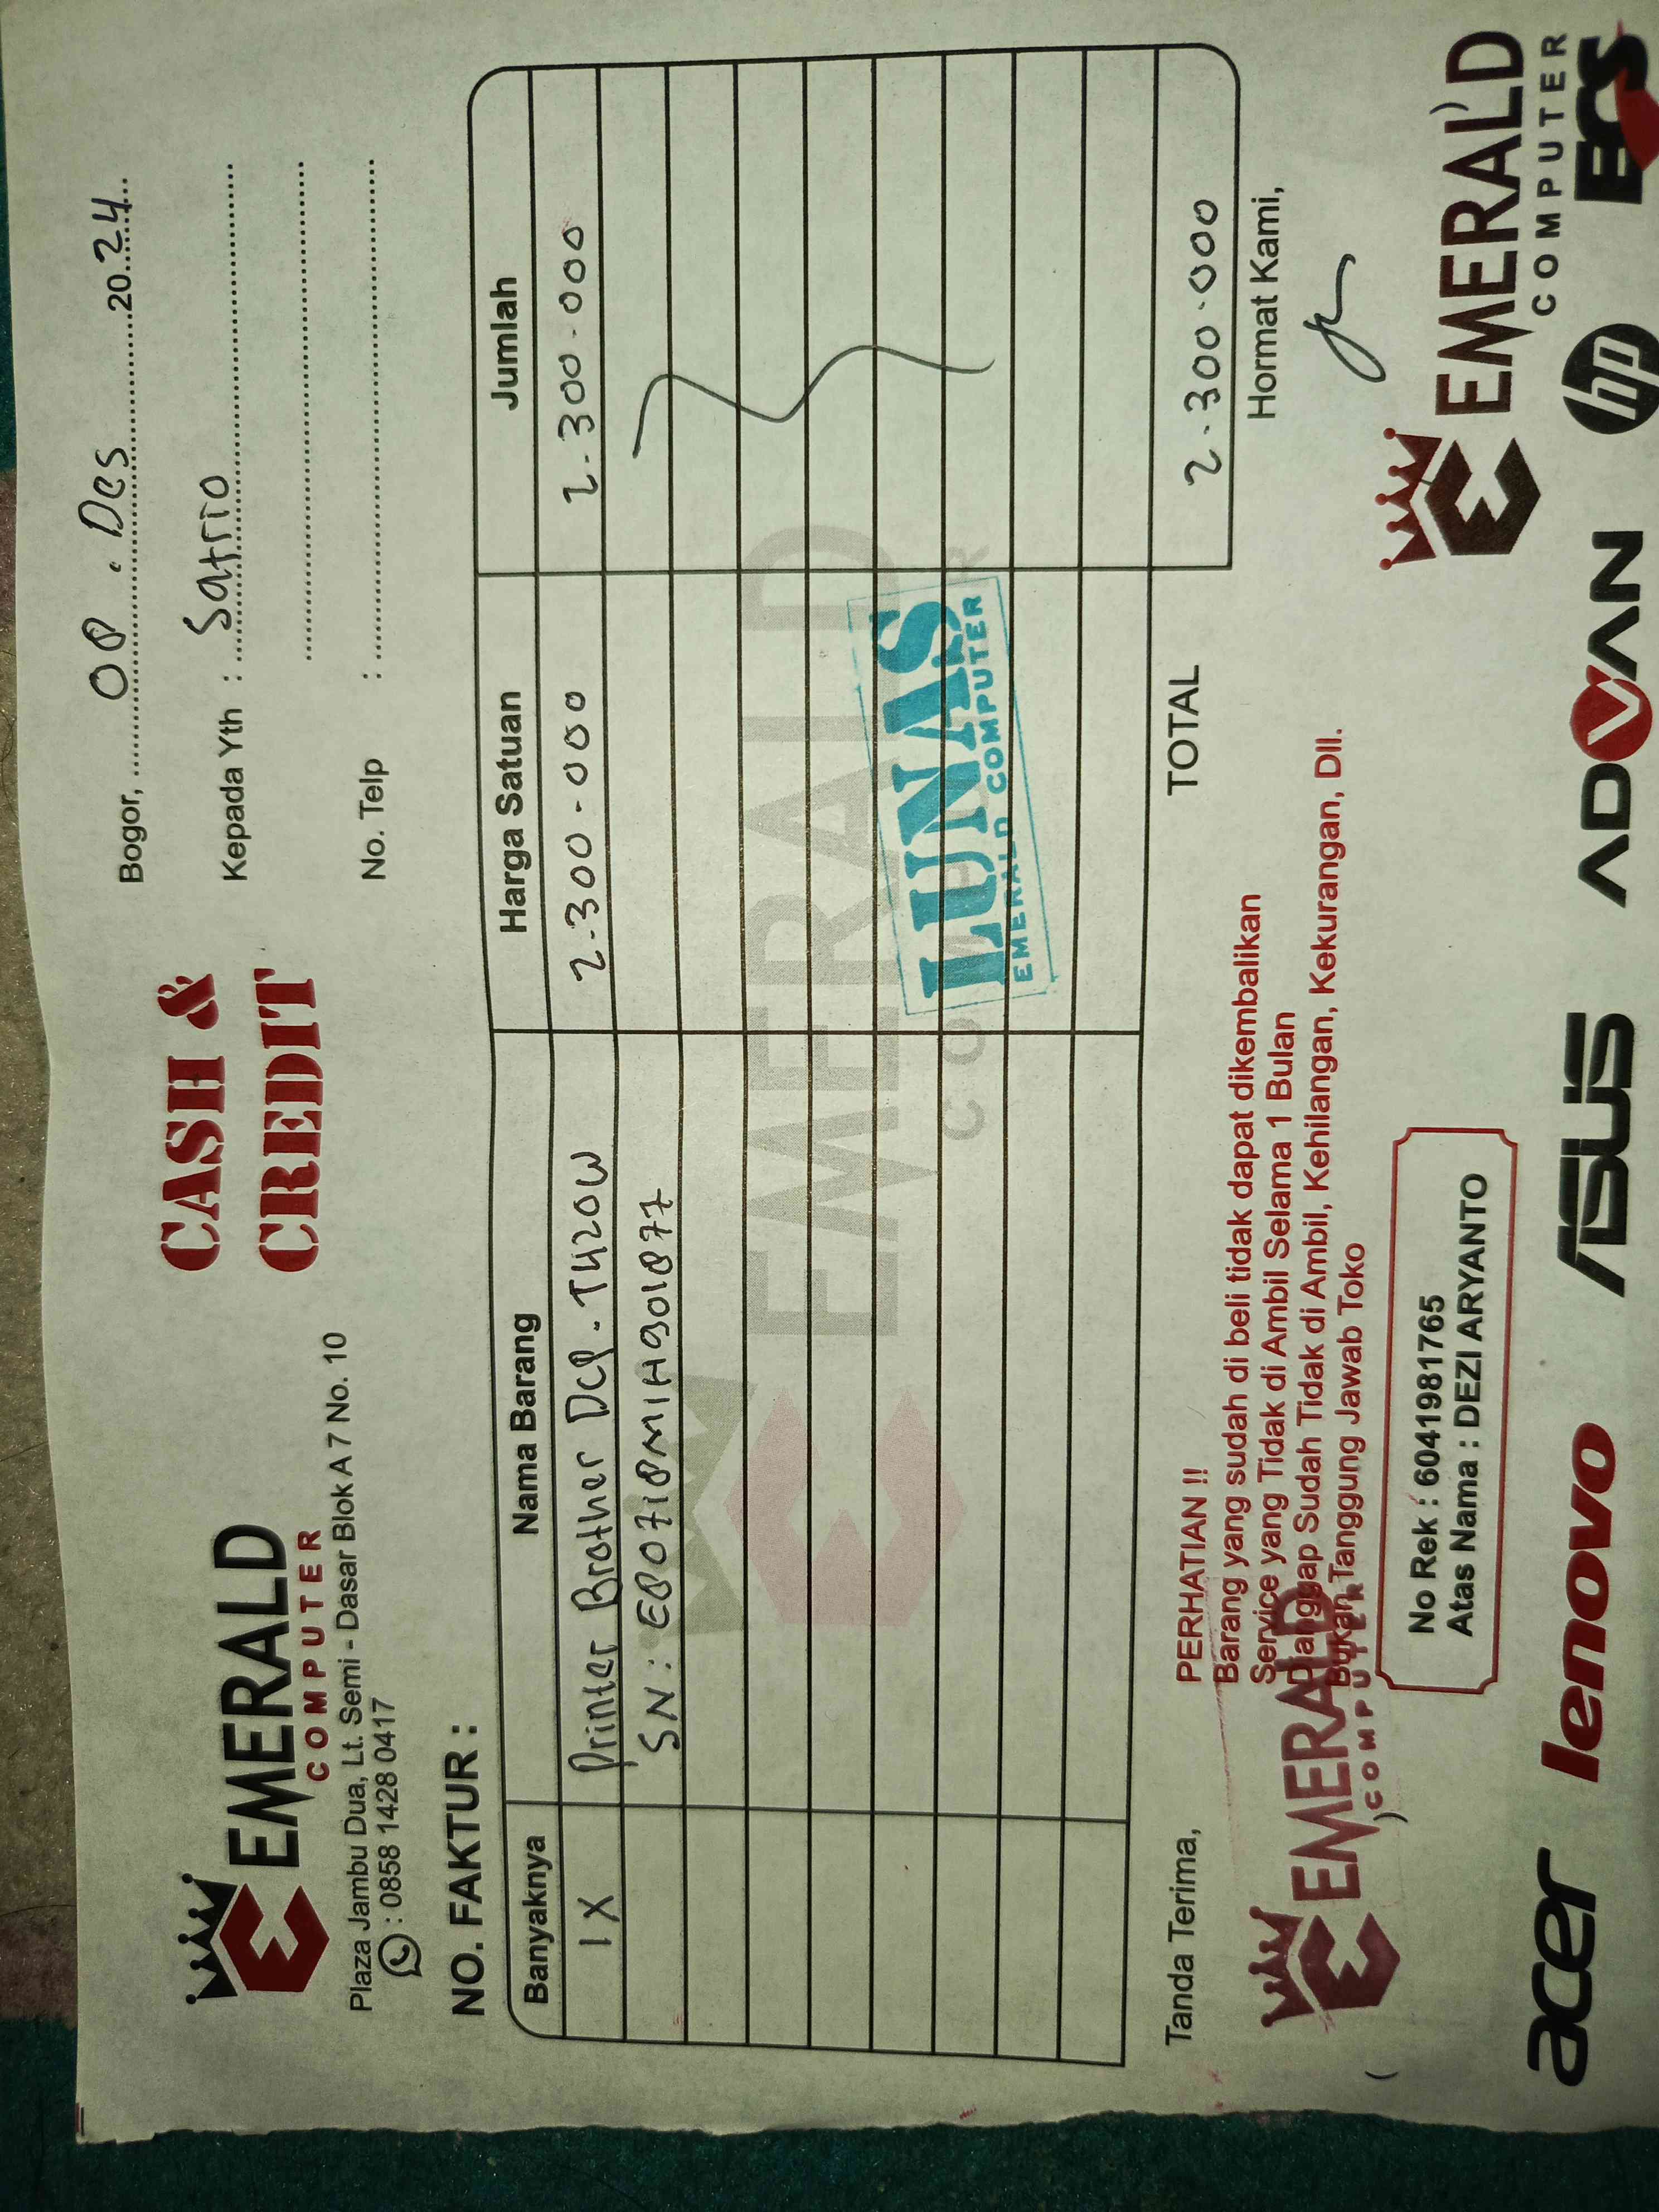 EMERALD
COMPUTER
Plaza Jambu Dua, Lt. Semi - Dasar Blok A 7 No. 10
: 0858 1428 0417
CASH &
CREDIT
Bogor, 08 . Des 20.24
Kepada Yth : Satrio
No. Telp :
NO. FAKTUR :
Banyaknya Nama Barang Harga Satuan Jumlah
1 X Printer Brother DCP - T420W 2.300.000 2.300.000
SN : E80718M1H901877
EMERALD
LUNAS
EMERALD COMPUTER
TOTAL 2.300.000
Tanda Terima,
Hormat Kami,
PERHATIAN !!
Barang yang sudah di beli tidak dapat dikembalikan
Service yang Tidak di Ambil Selama 1 Bulan
Dianggap Sudah Tidak di Ambil, Kehilangan, Kekurangan, Dll.
Bukan Tanggung Jawab Toko
No Rek : 6041981765
Atas Nama : DEZI ARYANTO
EMERALD
COMPUTER
EMERALD
COMPUTER
acer lenovo ASUS ADVAN hp ECS